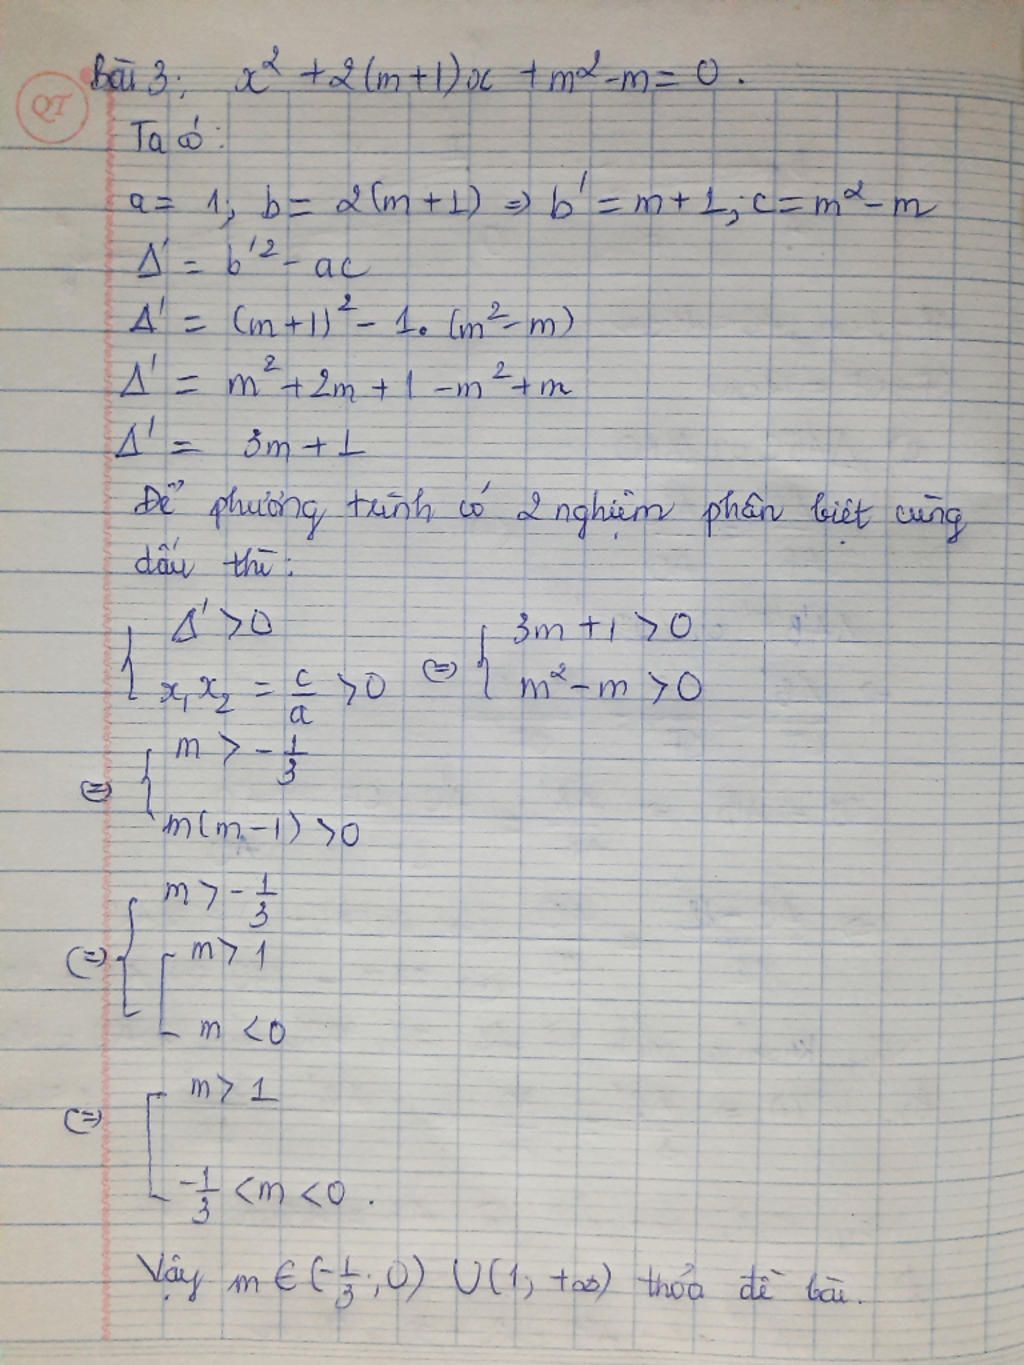 Bài 3: x² + 2(m+1)x + m² - m = 0.
QT
Ta có:
a = 1; b = 2(m+1) => b' = m+1; c = m² - m
Δ' = b'² - ac
Δ' = (m+1)² - 1. (m² - m)
Δ' = m² + 2m + 1 - m² + m
Δ' = 3m + 1
Để phương trình có 2 nghiệm phân biệt cùng
dấu thì:
{ Δ' > 0 (=) { 3m + 1 > 0
x₁x₂ = c/a > 0 m² - m > 0
(=) { m > -1/3
m(m-1) > 0
(=) { m > -1/3
[ m > 1
m < 0
(=) [ m > 1
-1/3 < m < 0.
Vậy m ∈ (-1/3; 0) ∪ (1; +∞) thỏa đề bài.